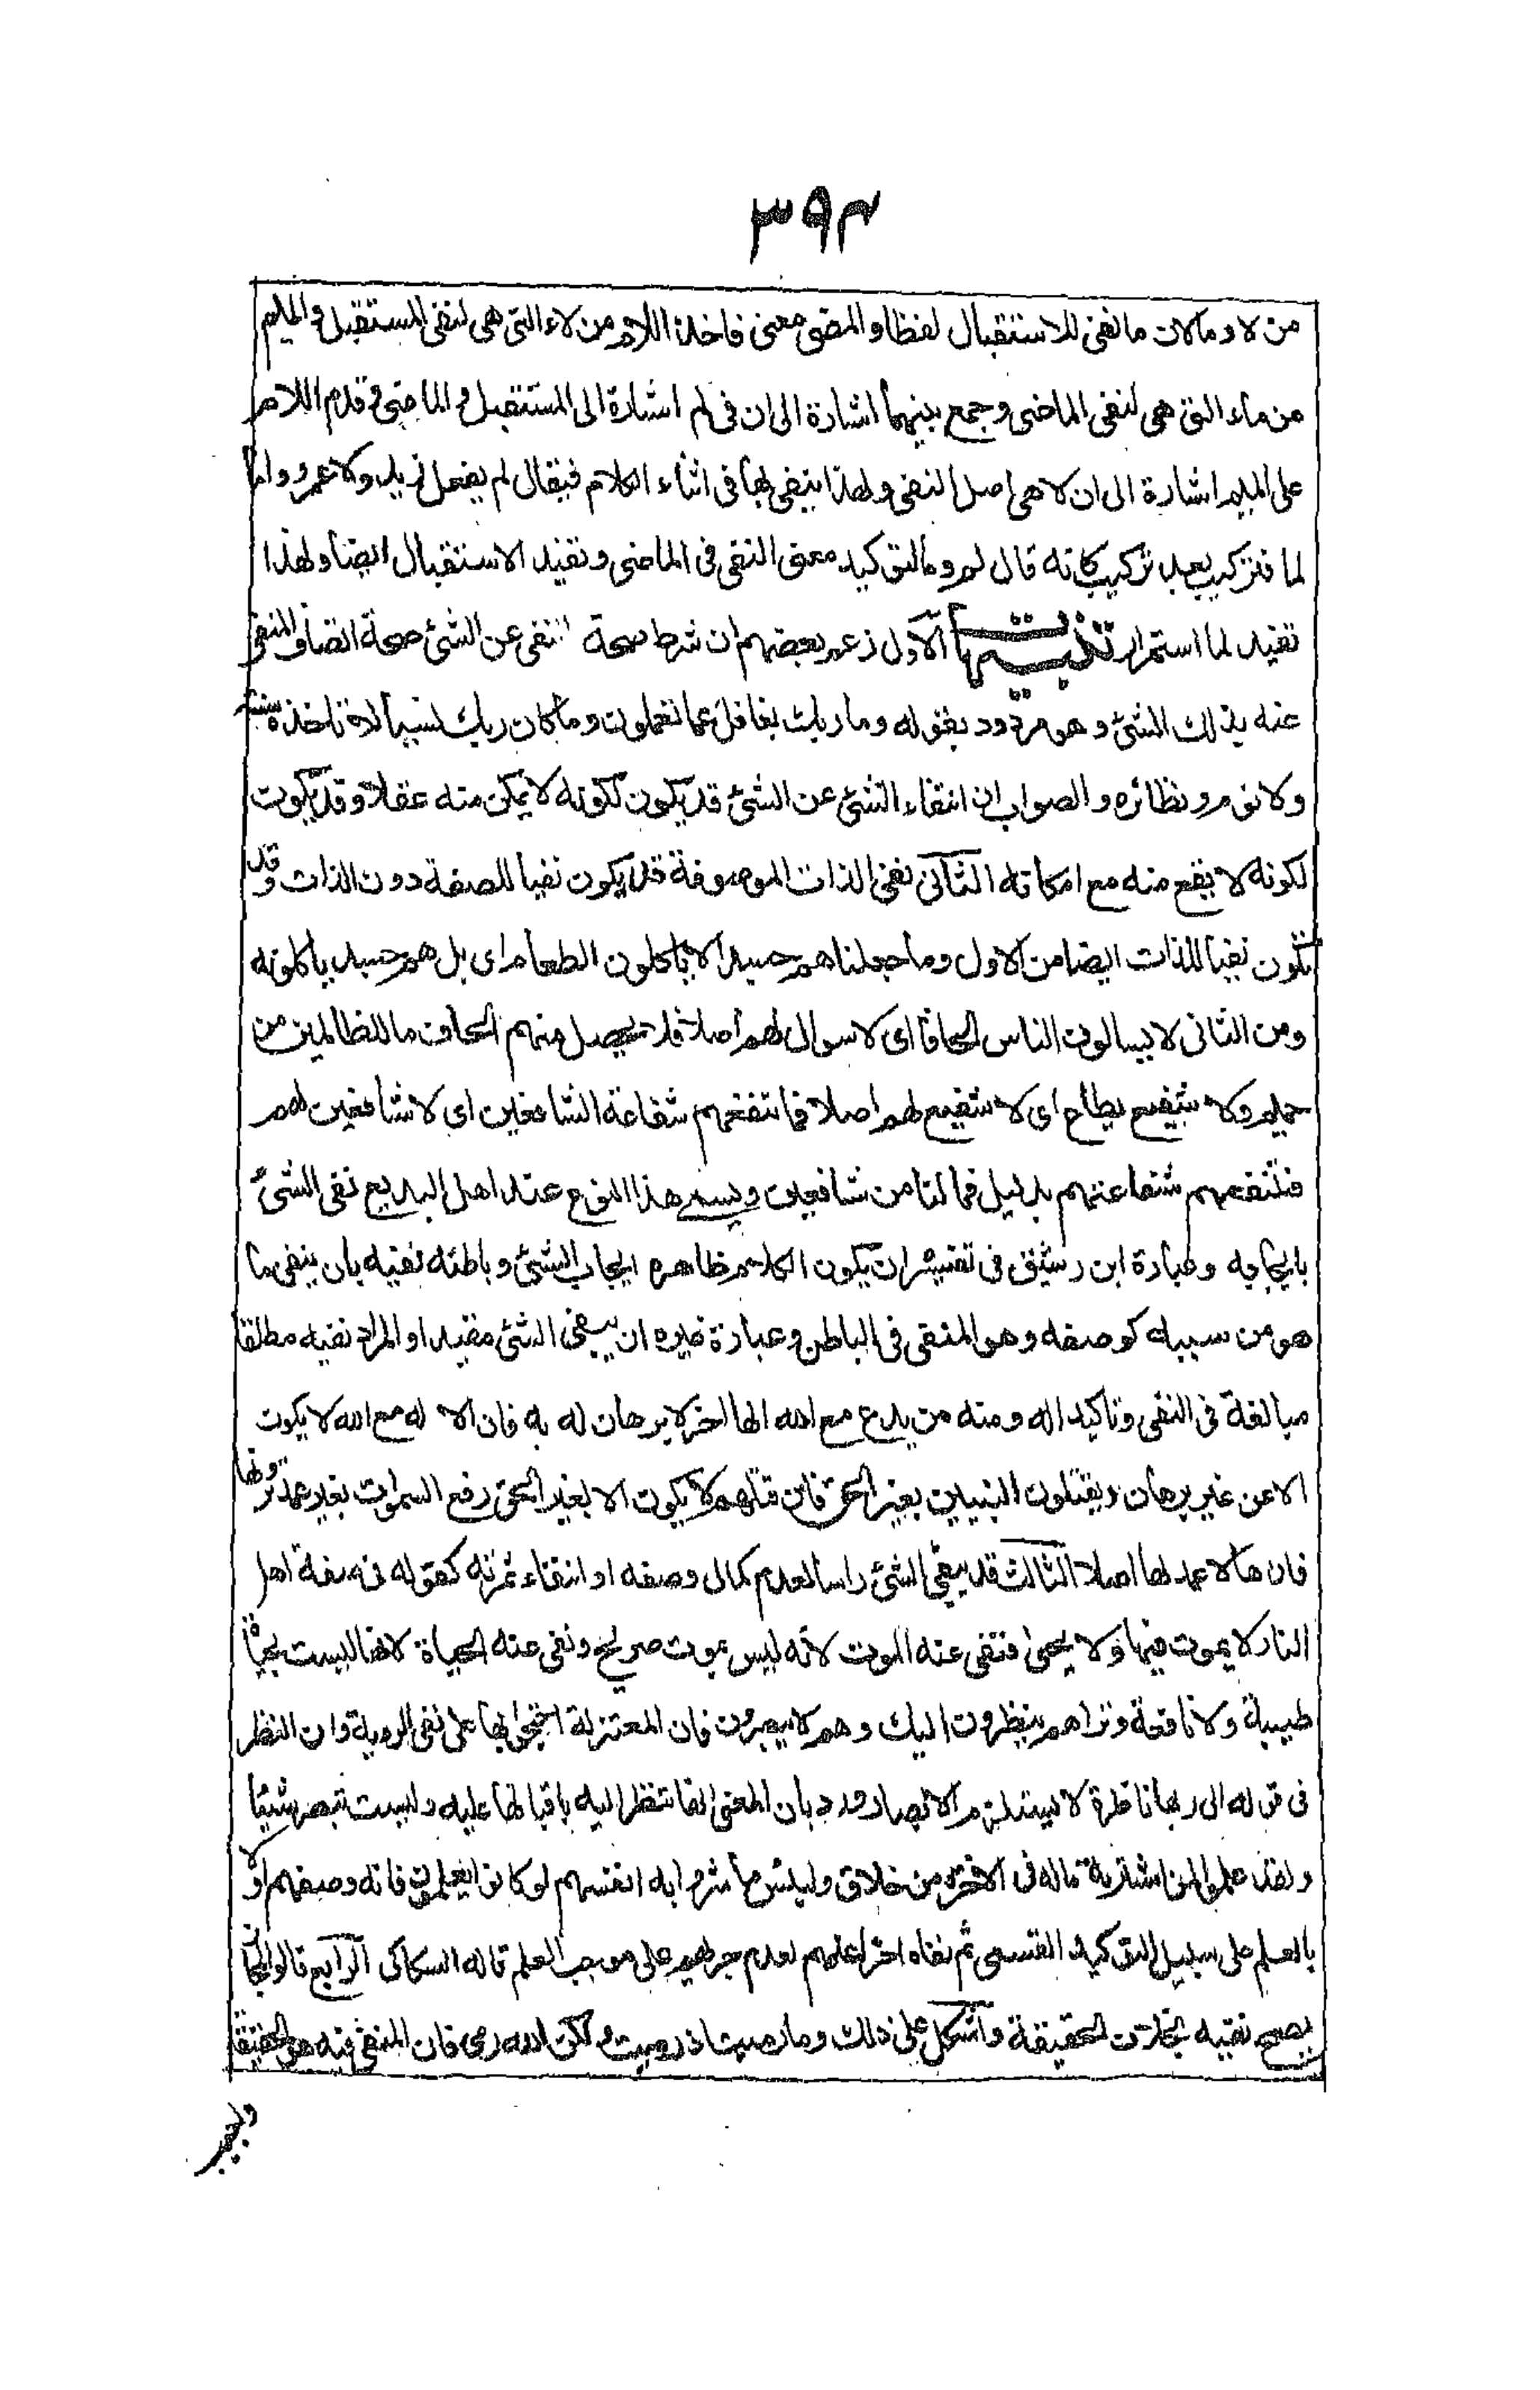 ٣٩٤
من لا وما لان ما لنفى للاستقبال لفظا والمضى معنى فاخذ اللام من لاء التى هى لنفى المستقبل والميم
من ماء التى هى لنفى الماضى وجمع بينهما اشارة الى ان فى لم اشارة الى المستقبل والماضى وقدم اللام
على الميم اشارة الى ان لا هى اصل النفى ولهذا ينفى بها فى اثناء الكلام فيقال لم يفعل زيد ولا عمرو واما
لما فتركيب بعد تركيب كانه قال لم وما لتوكيد معنى النفى فى الماضى وتفيد الاستقبال ايضا ولهذا
تفيد لما استمرار تنبيهات الاول زعم بعضهم ان شرط صحة النفى عن الشئ صحة اتصاف المنفى
عنه بذلك الشئ وهو مردود بقوله وما ربك بغافل عما تعملون وما كان ربك نسيا لا تاخذه سنة
ولا نوم ونظائره والصواب ان انتفاء الشئ عن الشئ قد يكون لكونه لا يمكن منه عقلا وقد يكون
لكونه لا يقع منه مع امكانه الثانى نفى الذات الموصوفة قد يكون نفيا للصفة دون الذات وقد
تكون نفيا للذات ايضا من الاول وما جعلناهم جسدا لا ياكلون الطعام اى بل هم جسد ياكلونه
ومن الثانى لا يسالون الناس الحافا اى لا سوال لهم اصلا فلا يحصل منهم الحاف ما للظالمين من
حميم ولا شفيع يطاع اى لا شفيع لهم اصلا فما تنفعهم شفاعة الشافعين اى لا شافعين لهم
فتنفعهم شفاعتهم بدليل فما لنا من شافعين ويسمى هذا النوع عند اهل البديع نفى الشئ
بايجابه وعبارة ابن رشيق فى تفسيره ان يكون الكلام ظاهره ايجاب الشئ وباطنه نفيه بان ينفى ما
هو من سببه كوصفه وهو المنفى فى الباطن وعبارة غيره ان ينفى الشئ مقيدا والمراد نفيه مطلقا
مبالغة فى النفى وتاكيدا له ومنه من يدع مع الله الها اخر لا برهان له به فان الا له مع الله لا يكون
الا عن غير برهان ويقتلون النبيين بغير الحق فان قتلهم لا يكون الا بغير الحق رفع السموات بغير عمد ترونها
فانها لا عمد لها اصلا الثالث قد ينفى الشئ راسا لعدم كمال وصفه او انتفاء ثمرته كقوله فى صفة اهل
النار لا يموت فيها ولا يحيى فنفى عنه الموت لانه ليس بموت صريح ونفى عنه الحياة لانها ليست بحياة
طيبة ولا نافعة وتراهم ينظرون اليك وهم لا يبصرون فان المعتزلة احتجوا بها على نفى الروية وان النظر
فى قوله الى ربها ناظرة لا يستلزم الابصار ورد بان المعنى انها تنظر اليه باقبالها عليه وليست تبصر شيئا
ولقد علموا لمن اشتريه ماله فى الاخرة من خلاق ولبئس ما شروا به انفسهم لو كانوا يعلمون فانه وصفهم اولا
بالعلم على سبيل التوكيد القسمى ثم نفاه اخرا عنهم لعدم جريهم على موجب العلم قاله السكاكى الرابع قالوا المجاز
يصح نفيه بخلاف الحقيقة واشكل على ذلك وما رميت اذ رميت ولكن الله رمى فان المنفى فيه هو الحقيقة